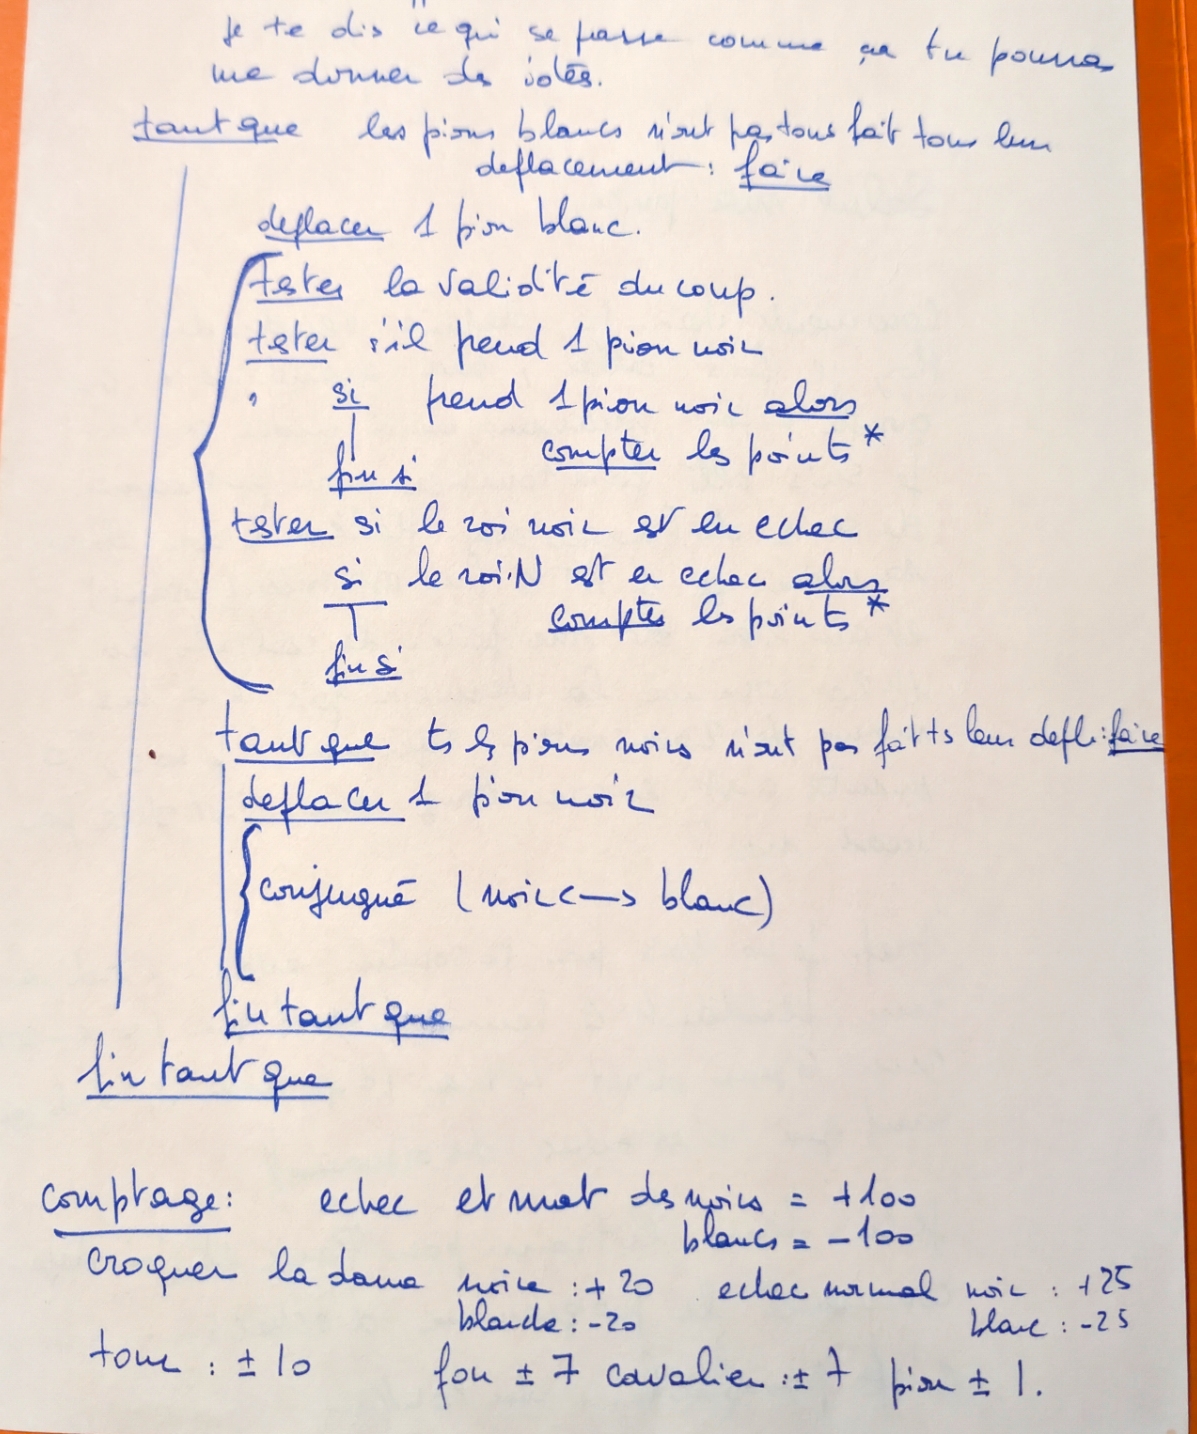 Je te dis ce qui se passe comme ça tu pourras
me donner des idées.
tant que les pions blancs n'ont pas tous fait tous leur
deplacement : faire
deplacer 1 pion blanc.
tester la validité du coup.
tester s'il prend 1 pion noir
si prend 1 pion noir alors
compter les points *
fin si
tester si le roi noir est en echec
si le roi.N est en echec alors
compter les points *
fin si
tant que ts les pions noirs n'ont pas fait ts leur depl : faire
deplacer 1 pion noir
conjugué (noir <-> blanc)
fin tant que
fin tant que
comptage : echec et mat des noirs = +100
blancs = -100
croquer la dame noire : +20 echec normal noir : +25
blanche : -20 blanc : -25
tour : ± 10 fou ± 7 cavalier : ± 7 pion ± 1.